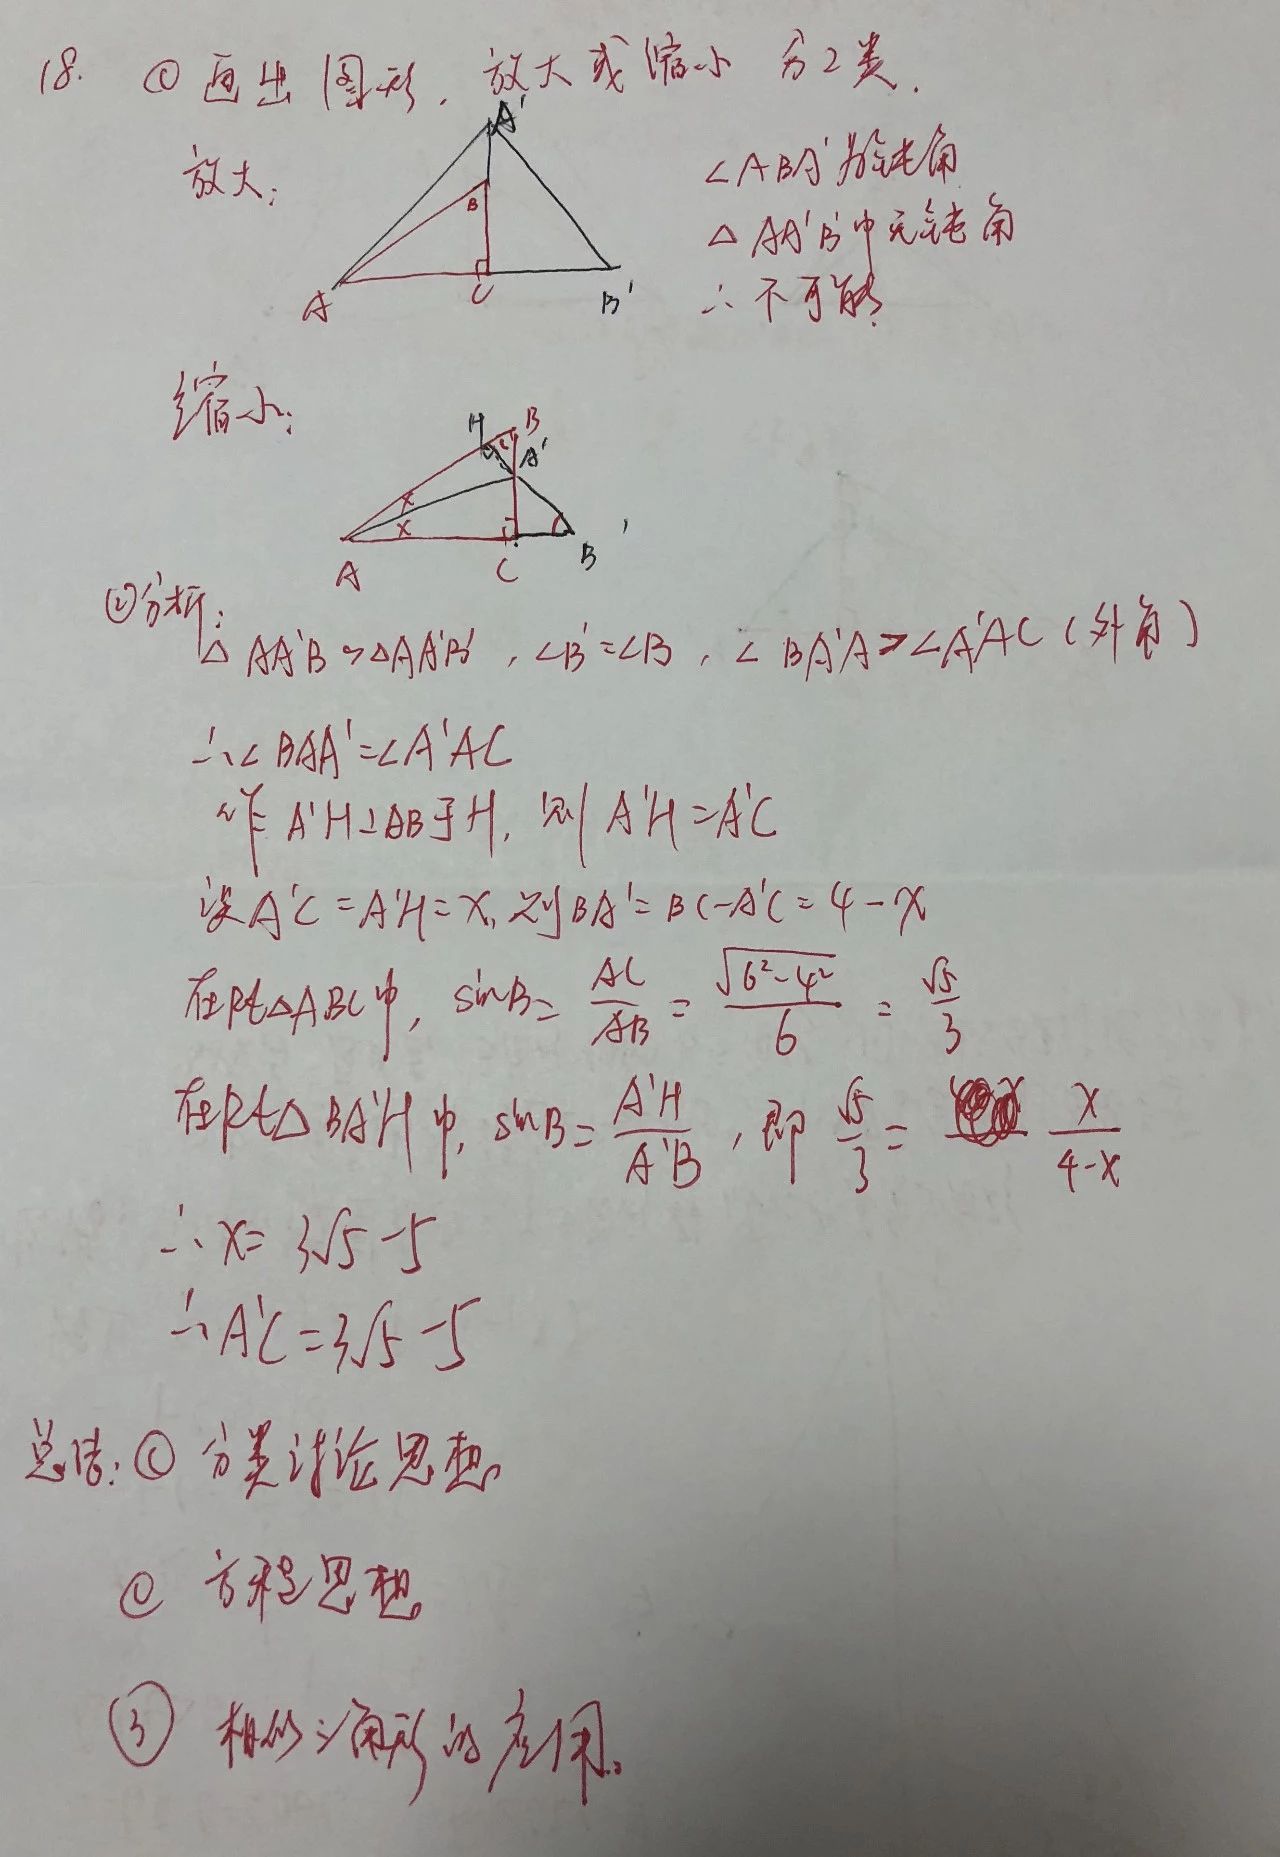 18. ①画出图形, 放大或缩小 分2类.
放大:
A'
B
A
C
B'
∠ABA'为钝角
△AA'B'中无钝角
∴不可能
缩小:
H
B
A'
x
x
A
C
B'
②分析:
△AA'B∽△AA'B', ∠B'=∠B, ∠BA'A>∠A'AC(外角)
∴∠BAA'=∠A'AC
作A'H⊥AB于H, 则A'H=A'C
设A'C=A'H=x, 则BA'=BC-A'C=4-x
在Rt△ABC中, sinB=AC/AB=√(6²-4²)/6=√5/3
在Rt△BA'H中, sinB=A'H/A'B, 即 √5/3= x/(4-x)
∴x=3√5-5
∴A'C=3√5-5
总结: ①分类讨论思想
② 方程思想
③ 相似三角形的应用。